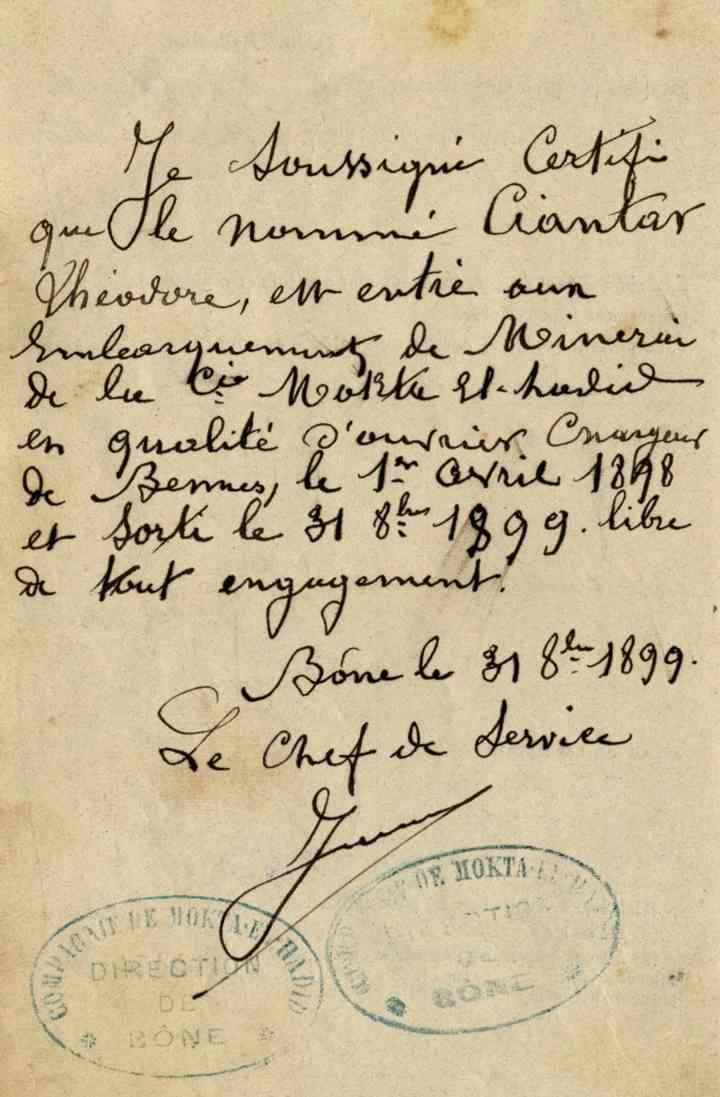 Je Soussigné Certifi
que le nommé Ciantar
Théodore, est entré aux
Embarquements de Minerai
de la Cie Mokta El-hadid
en qualité d'ouvrier Chargeur
de Bennes, le 1er Avril 1898
et Sorti le 31 8bre 1899. libre
de tout engagement.
Bône le 31 8bre 1899.
Le Chef de Service
COMPAGNIE DE MOKTA-EL-HADID
DIRECTION
DE
BÔNE
DE MOKTA-EL-HADID
DE
BÔNE